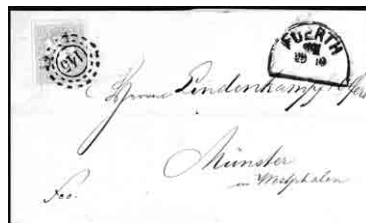 145
FUERTH
Herren Lindenkampf &
Münster
in Westphalen
Fco.